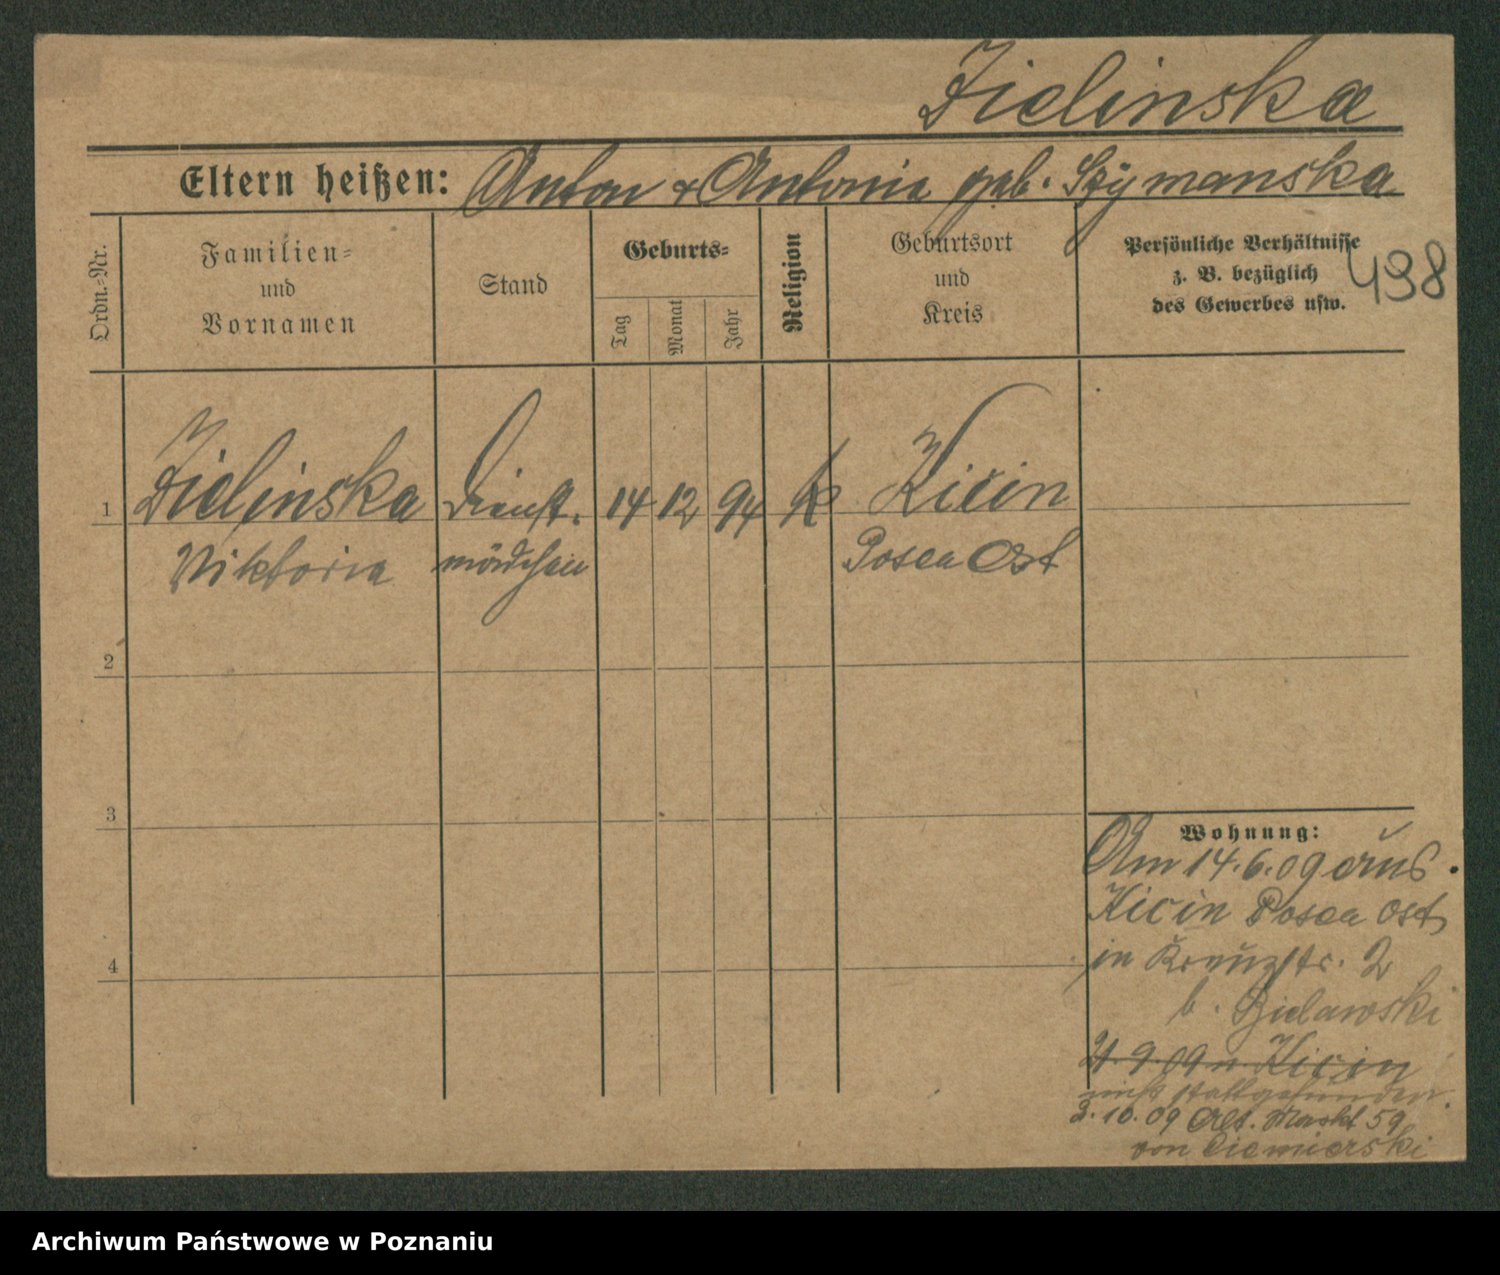 Zielinska
Eltern heißen: Anton & Antonie geb. Szymanska
498
Ordn.-Nr.
Familien-
und
Vornamen
Stand
Geburts-
Tag
Monat
Jahr
Religion
Geburtsort
und
Kreis
Persönliche Verhältnisse
z. B. bezüglich
des Gewerbes usw.
1 Zielinska Dienst- 14 12 94 k Kicin
Viktoria mädchen Posen Ost
2
3
4
Wohnung:
Am 14.6.09 aus
Kicin Posen Ost
in Kreuzstr. 2
b. Bielawski
9.09 n Kicin
nicht stattgefunden.
2.10.09 Alt. Markt 59
von